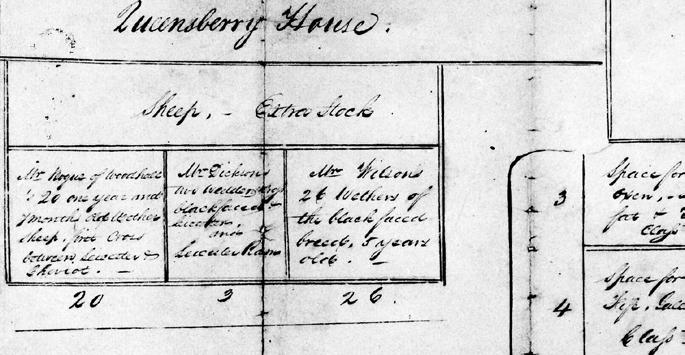 Queensberry House.
Sheep, - Extra Stock
Mr Hogue of Woodhall
20 one year and
months old Wether
Sheep, first Cross
between Leicester &
Cheviot. -
20
Mr Dickson
two wedders
blackfaced &
Leicester
and
Leicester Ram
3
Mr Wilson's
26 Wethers of
the black faced
breed, 3 years
old. -
26.
3
Space for
oxen,
fat
Class
4
Space for
Class